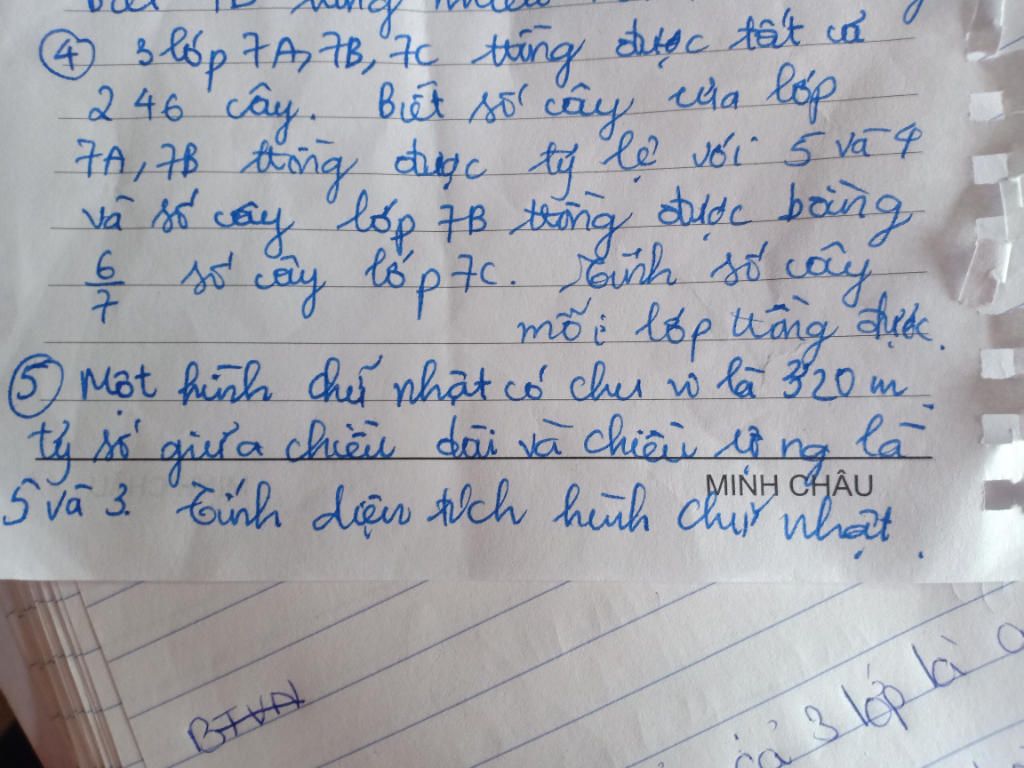 ④ 3 lớp 7A, 7B, 7C trồng được tất cả
246 cây. Biết số cây của lớp
7A, 7B trồng được tỷ lệ với 5 và 4
và số cây lớp 7B trồng được bằng
6/7 số cây lớp 7C. Tính số cây
mỗi lớp trồng được.
⑤ Một hình chữ nhật có chu vi là 320 m.
tỷ số giữa chiều dài và chiều rộng là
MINH CHÂU
5 và 3. Tính diện tích hình chữ nhật.
BTVN
cả 3 lớp là